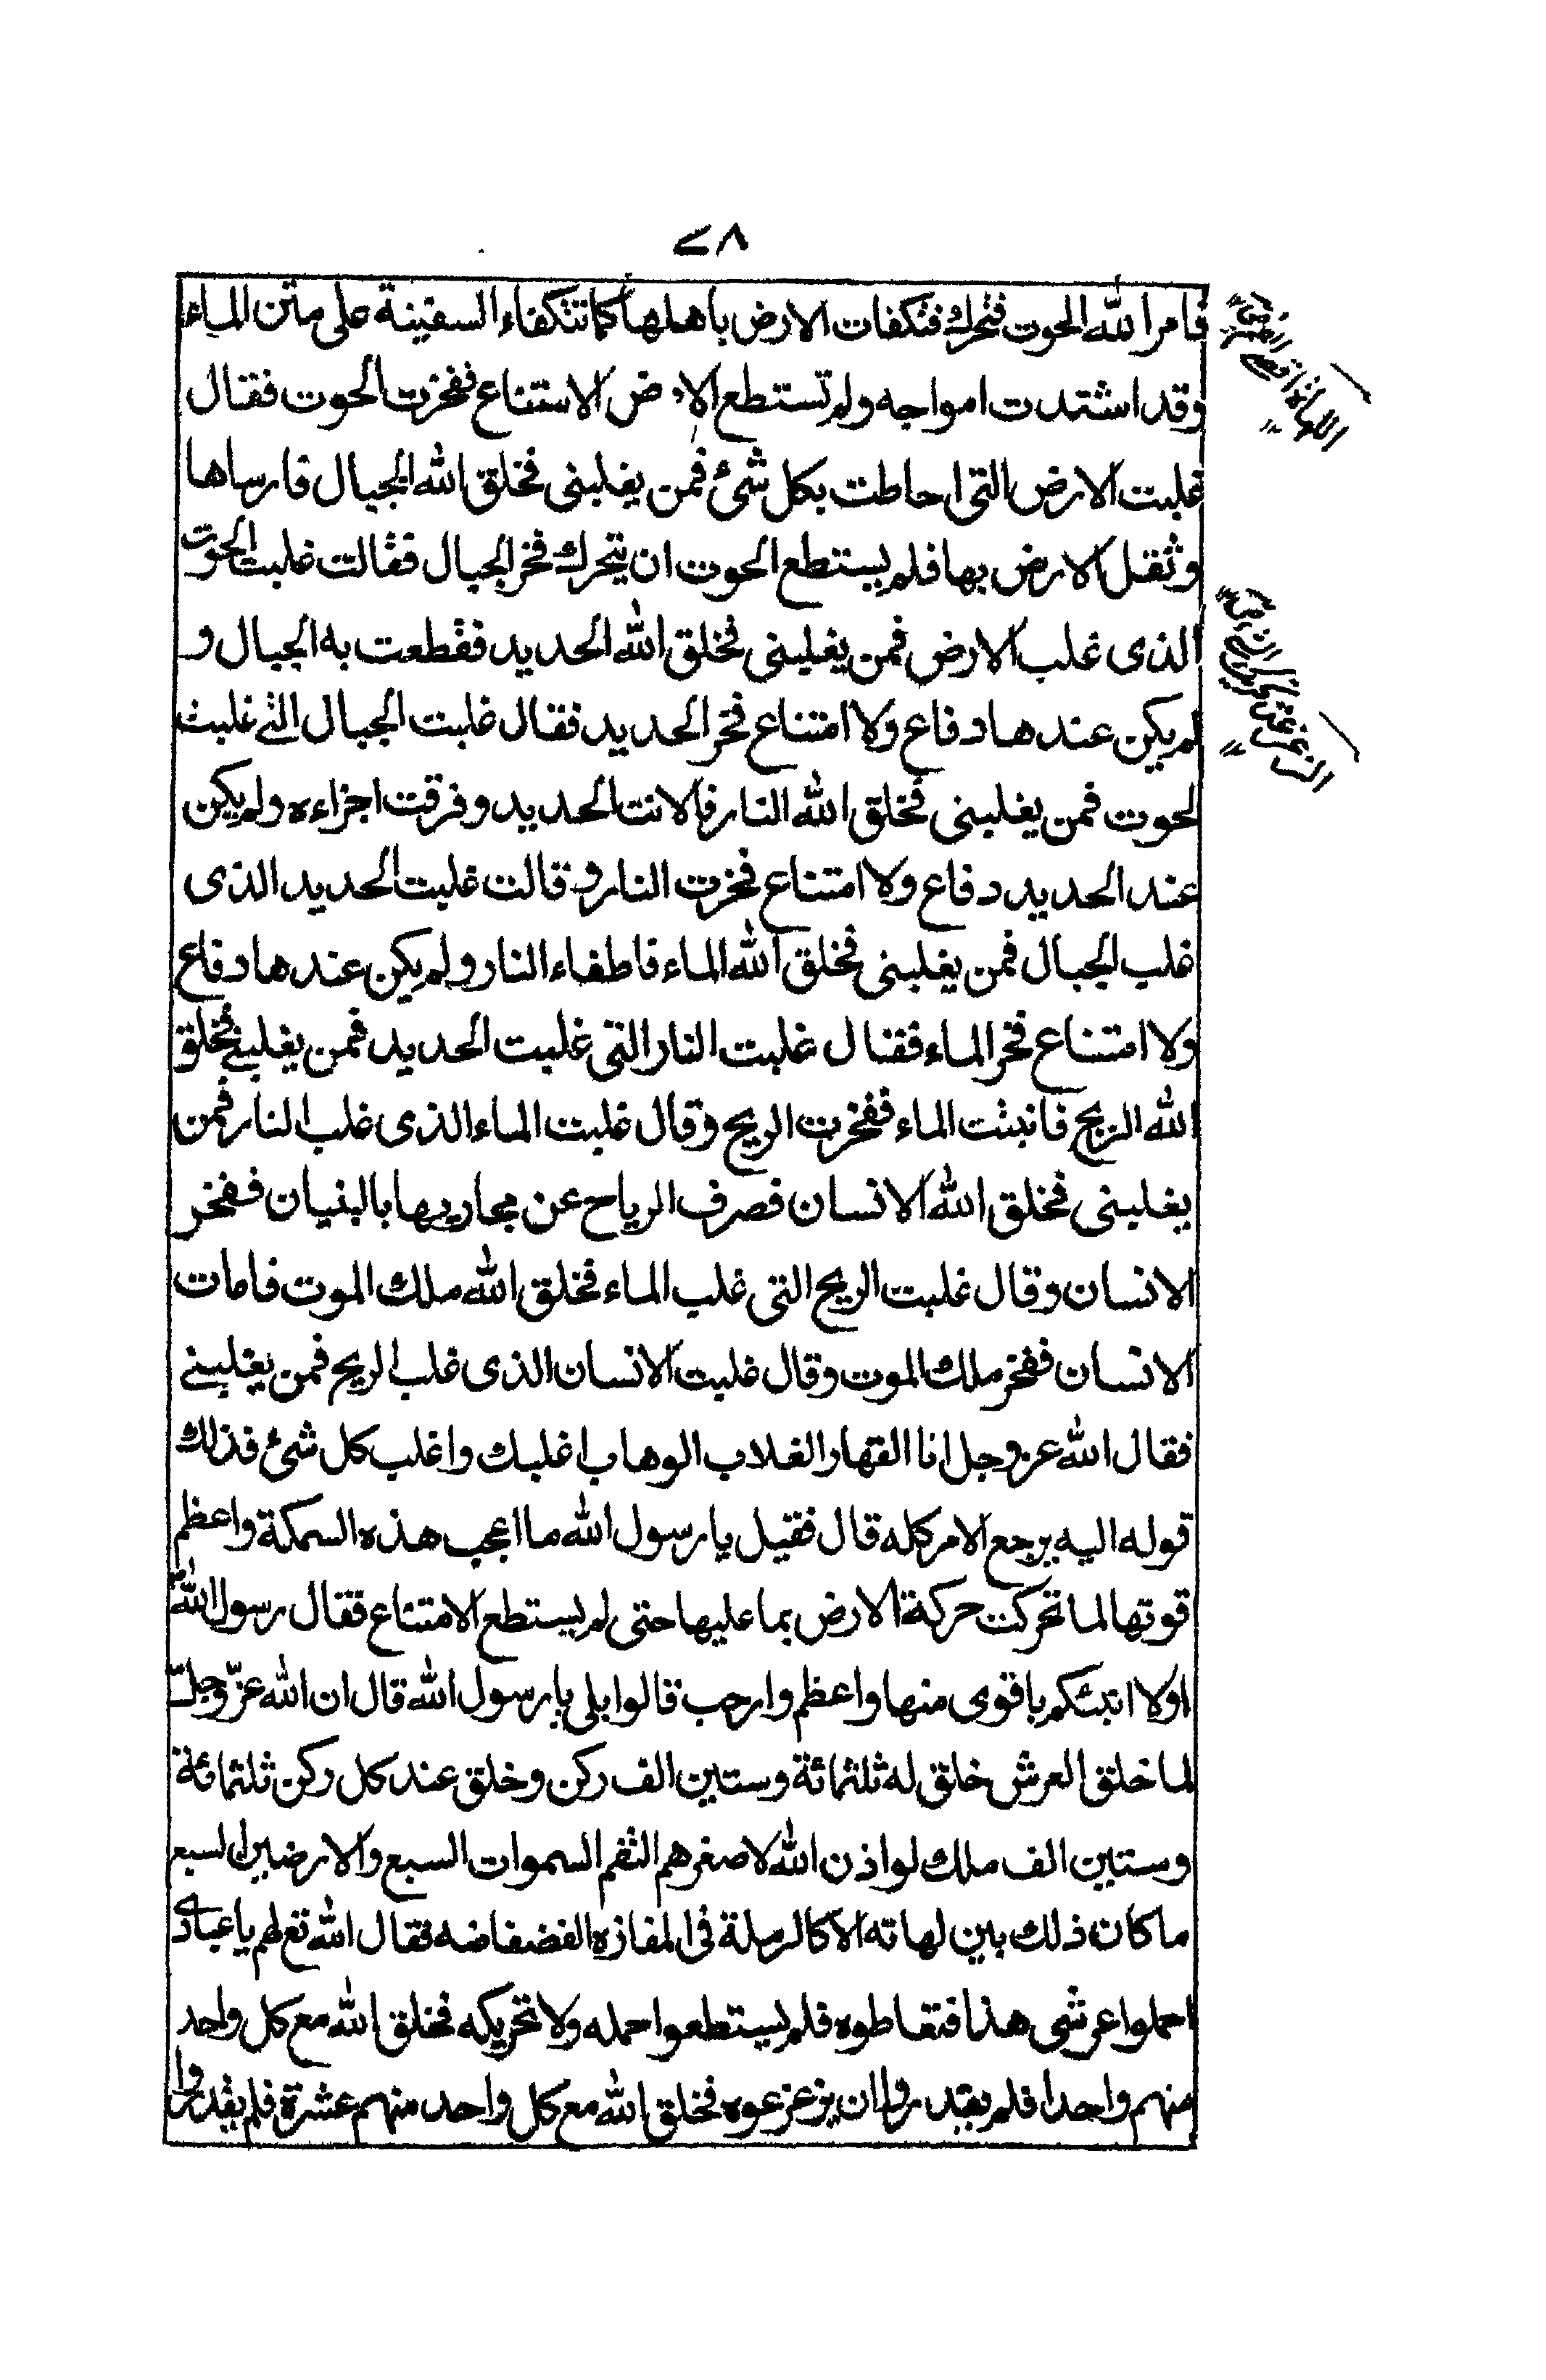 ٧٨
فامر الله الحوت فتحرك فتكفات الارض باهلها كما تتكفاء السفينة على متن الماء
وقد اشتدت امواجه ولم تستطع الارض الامتناع ففخرت الحوت فقال
غلبت الارض التى احاطت بكل شئ فمن يغلبنى فخلق الله الجبال فارساها
وثقل الارض بها فلم يستطع الحوت ان يتحرك فخر الجبال فقالت غلبت الحوت
الذى غلب الارض فمن يغلبنى فخلق الله الحديد فقطعت به الجبال و
لم يكن عندها دفاع ولا امتناع فخر الحديد فقال غلبت الجبال التى غلبت
لحوت فمن يغلبنى فخلق الله النار فالانت الحديد وفرقت اجزاءه ولم يكن
عند الحديد دفاع ولا امتناع فخرت النار وقالت غلبت الحديد الذى
غلب الجبال فمن يغلبنى فخلق الله الماء فاطفاء النار ولم يكن عندها دفاع
ولا امتناع فخر الماء فقال غلبت النار التى غلبت الحديد فمن يغلبنى فخلق
الله الريح فانبثت الماء ففخرت الريح وقال غلبت الماء الذى غلب النار فمن
يغلبنى فخلق الله الانسان فصرف الرياح عن مجاريها بالبنيان ففخر
الانسان وقال غلبت الريح التى غلب الماء فخلق الله ملك الموت فامات
الانسان ففخر ملك الموت وقال غلبت الانسان الذى غلب الريح فمن يغلبنى
فقال الله عز وجل انا القهار الغلاب الوهاب اغلبك واغلب كل شئ فذلك
قوله اليه يرجع الامر كله قال فقيل يا رسول الله ما اعجب هذه السمكة واعظم
قوتها لما تحركت حركة الارض بما عليها حتى لم يستطع الامتناع فقال رسول الله ص
اولا انبئكم باقوى منها واعظم وارحب قالوا بلى يا رسول الله قال ان الله عزّ وجلّ
لما خلق العرش خلق له ثلثمائة وستين الف ركن وخلق عند كل ركن ثلثمائة
وستين الف ملك لو اذن الله لاصغرهم التقم السموات السبع والارضين السبع
ما كان ذلك بين لهاته الا كالرملة فى المفازه الفضفاضه فقال الله تع لهم يا عبادى
احملوا عرشى هذا فتعاطوه فلم يستطعوا حمله ولا تحريكه فخلق الله مع كل واحد
منهم واحدا فلم يقدروا ان يزعزعوه فخلق الله مع كل واحد منهم عشرة فلم يقدروا